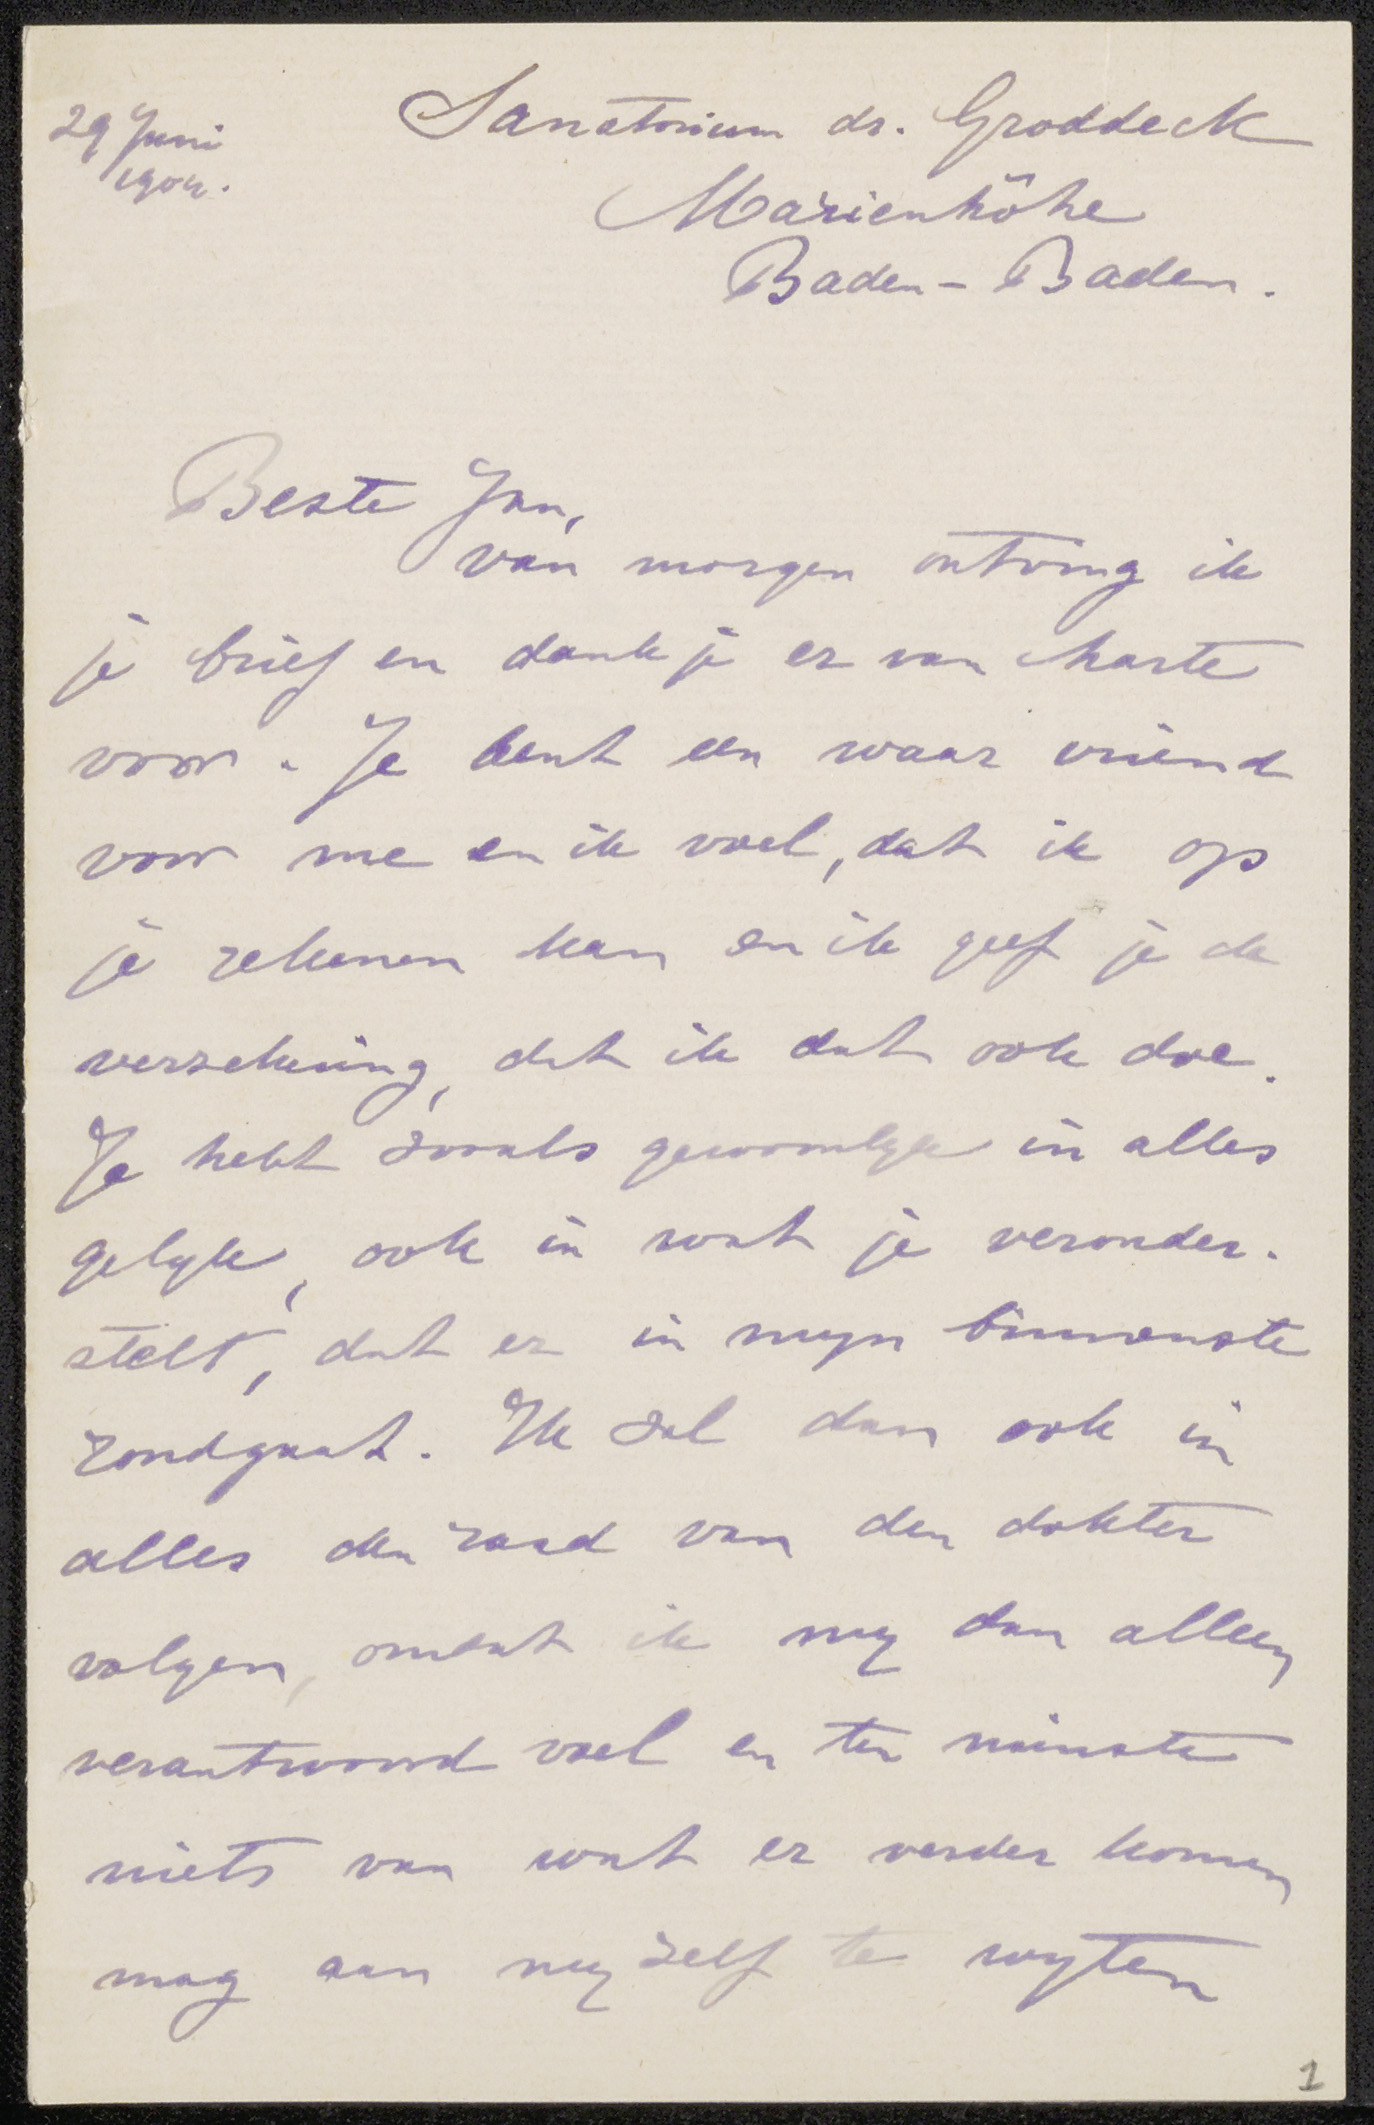 29 Juni
Sanatorium dr. Groddeck
Marienhöhe
Baden-Baden.
Beste Jan,
van morgen ontving ik
je brief en dank je er van harte
voor. Je bent een waar vriend
voor me en ik voel, dat ik op
je rekenen kan en ik geef je de
verzekering, dat ik dat ook doe.
Je hebt zooals gewoonlyk in alles
gelyk, ook in wat je veronder-
stelt, dat er in myn binnenste
rondgaat. Ik zal dan ook in
alles den raad van den dokter
volgen, omdat ik my dan alleen
verantwoord voel en ten minste
niets van wat er verder komen
mag aan myzelf te wyten
1